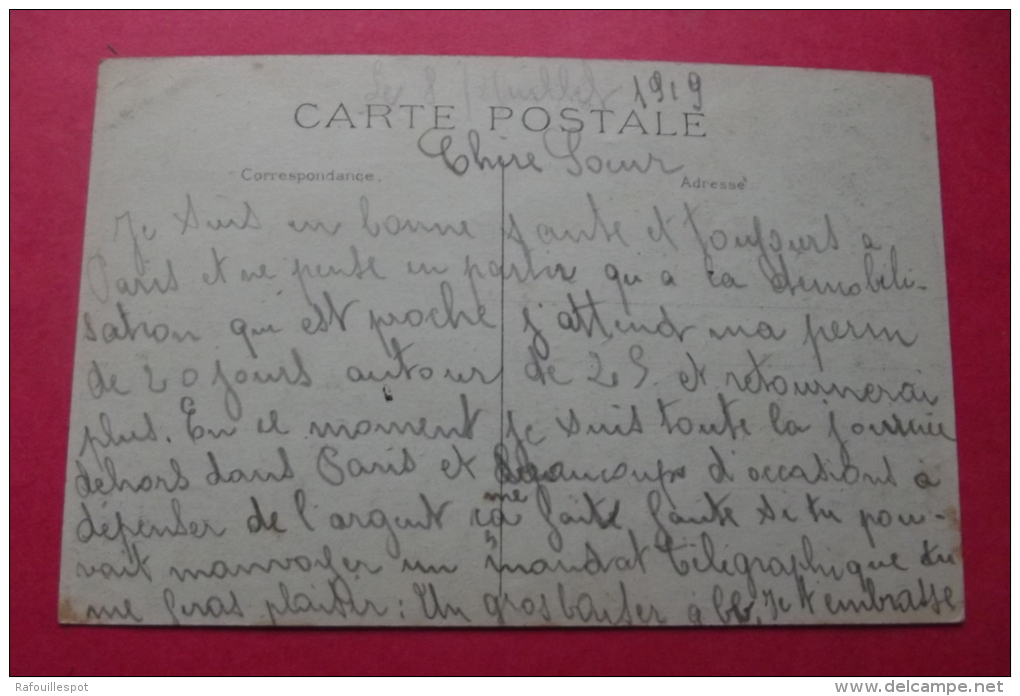 Le 8 Juillet 1919
CARTE POSTALE
Chère Soeur
Correspondance. Adresse
Je suis en bonne santé et toujours a
Paris et ne pense en partir qu'a la démobili-
sation qui est proche j'attend ma perm
de 20 jours autour de 25 et retournerai
plus. En ce moment je suis toute la journée
dehors dans Paris et beaucoup d'occasions à
dépenser de l'argent ça me faite faute si tu pou-
vait m'anvoyer un mandat télégraphique tu
me feras plaisir : Un gros baiser à bb, Je t'embrasse
Rafouillespot
www.delcampe.net